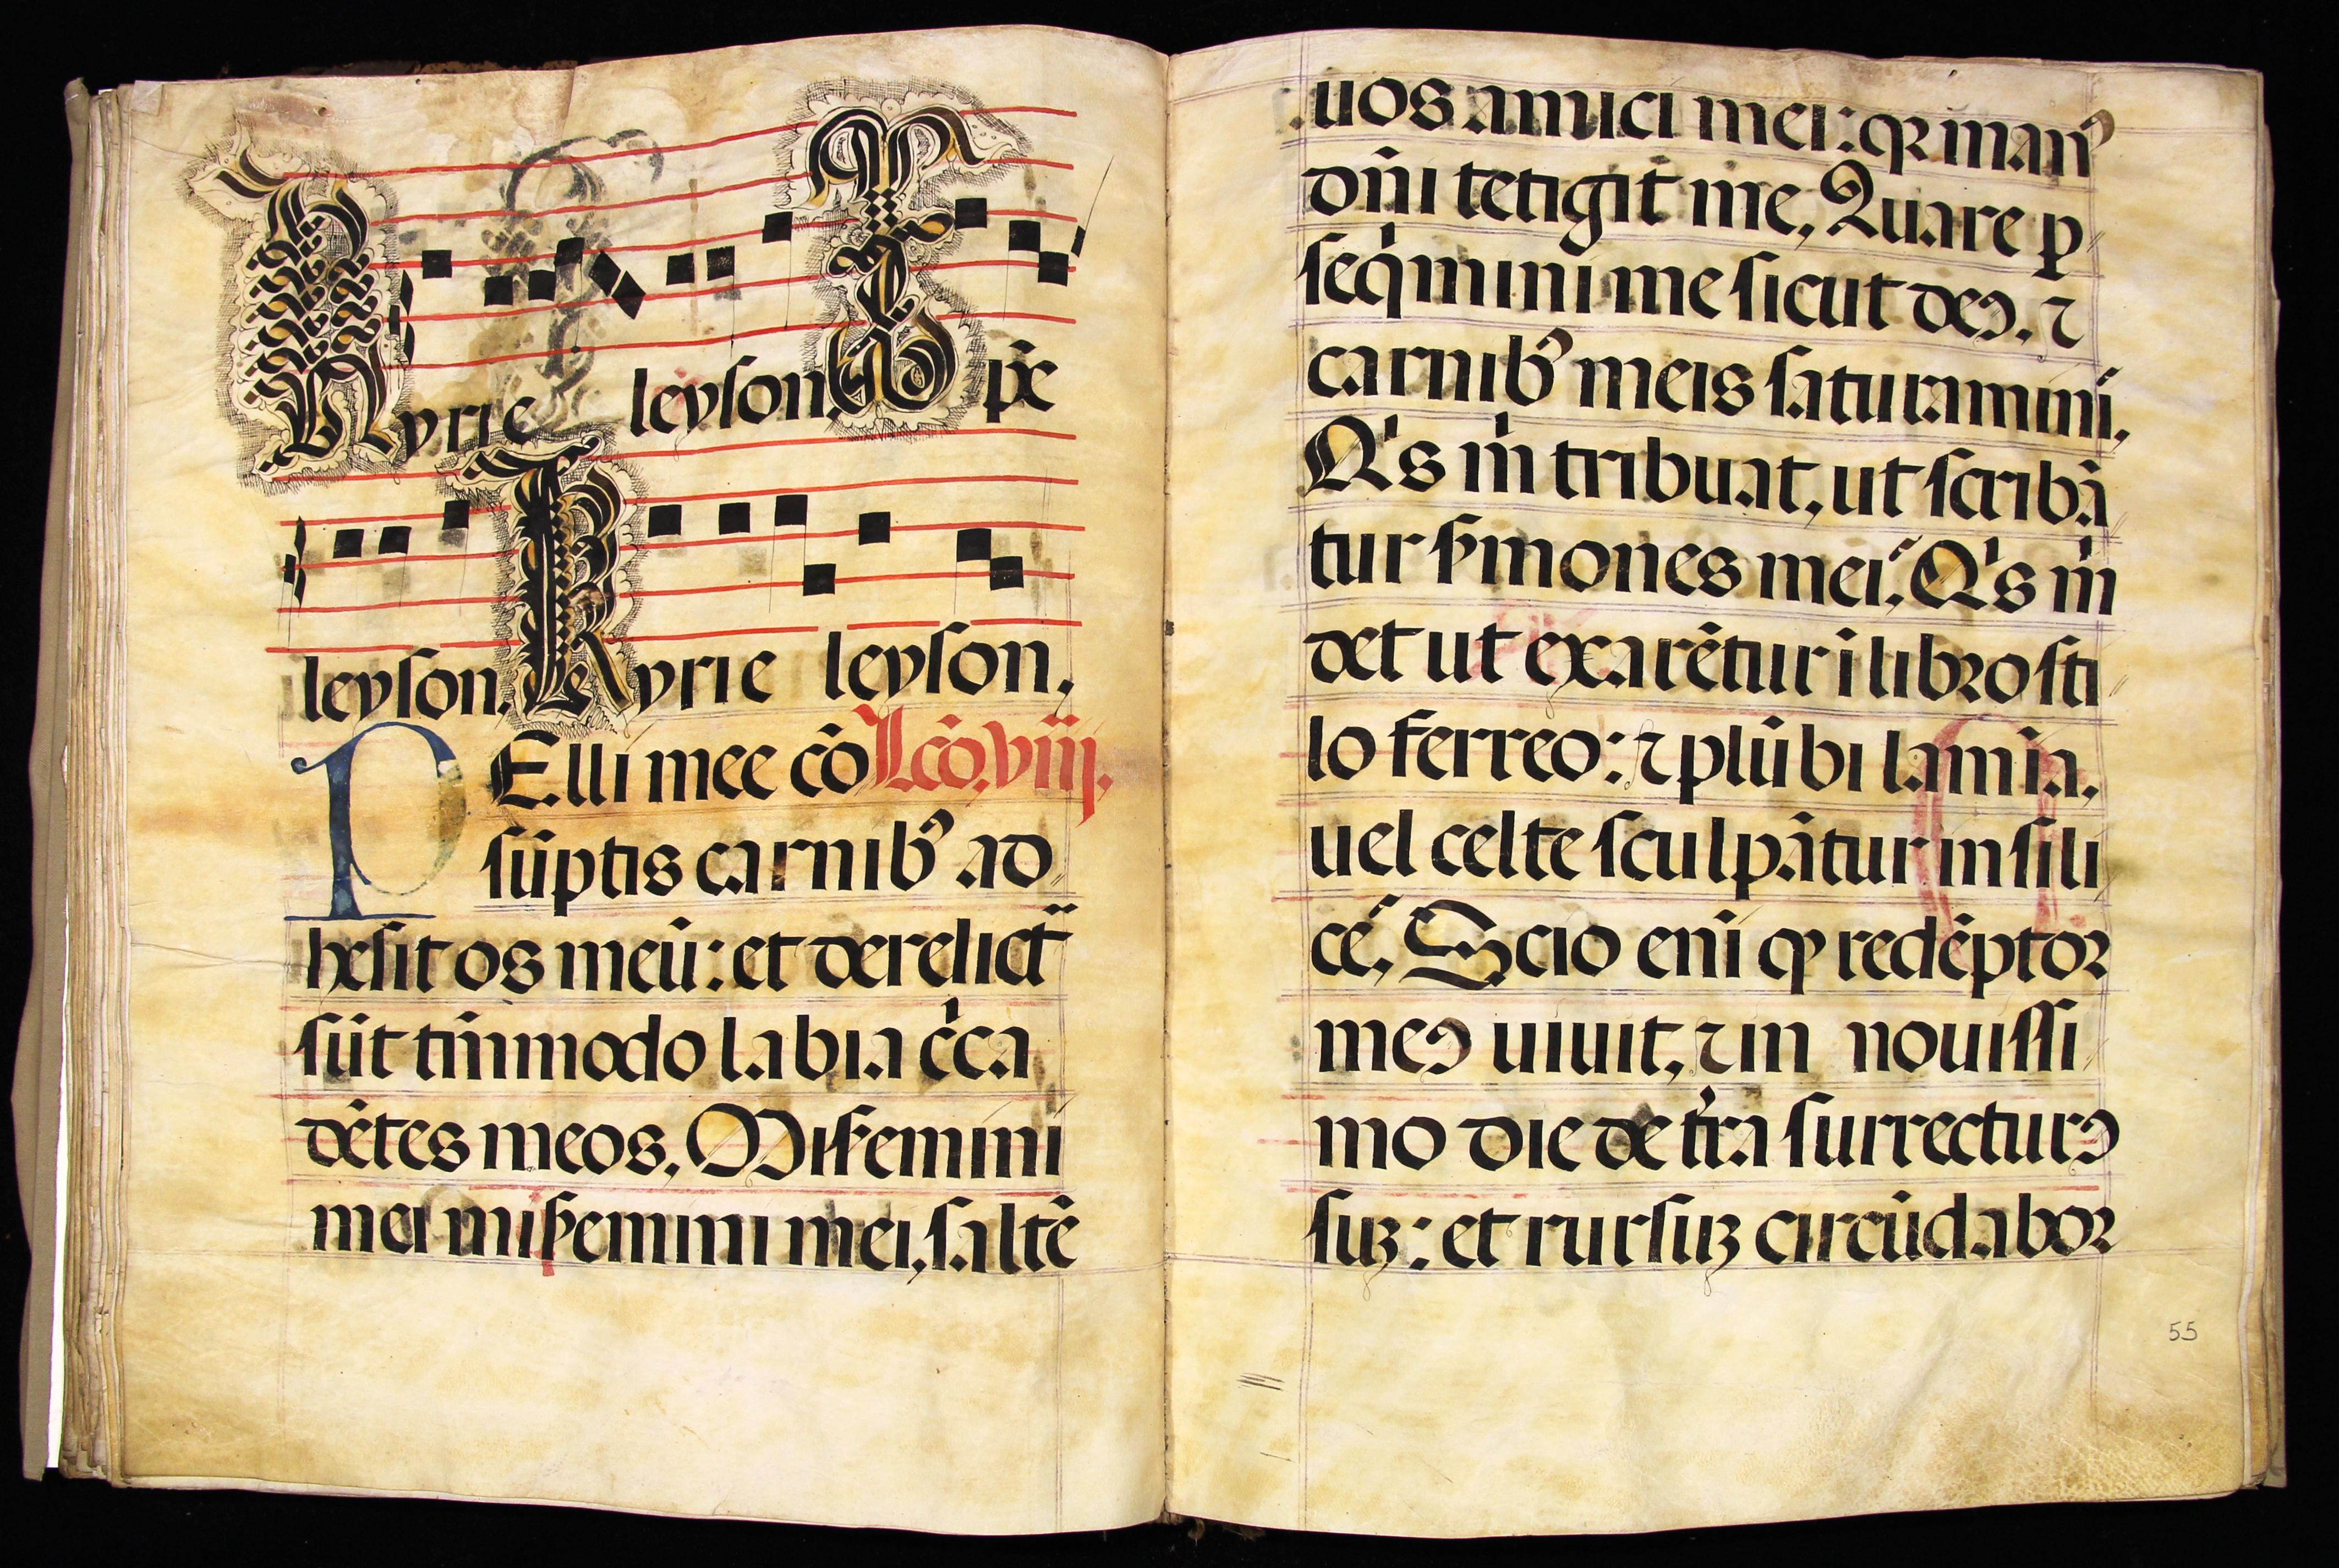 Kyrie leyson. Xp̄e
leyson. Kyrie leyson.
PElli mee cõ Lcõ. viij.
sũptis carnibꝰ ad
hesit os meũ: et derelict̃
sũt tm̃modo labia cͥca
dẽtes meos. Miſemini
mei miſemini mei, saltẽ
uos amici mei: qꝛ manꝰ
dñi tetigit me. Quare ꝑ
seqͥmini me sicut deꝰ. ⁊
carnibꝰ meis saturamini.
Qͥs m̃ tribuat, ut scribã
tur ſmones mei? Qͥs m̃
det ut exarẽtur ĩ libro sti
lo ferreo: ⁊ plũbi lamĩa,
uel celte sculpãtur in sili
ce? Scio enĩ ꝙ redẽptor
meꝰ uiuit, ⁊ in nouissi
mo die de tr̃a surrecturꝰ
suꝫ: et rursuꝫ circũdabor
55